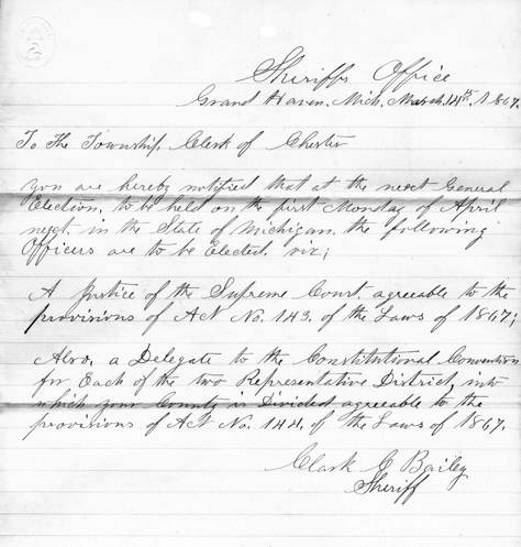 Sheriffs Office
Grand Haven, Mich, March, 14th, 1867.
To The Township, Clerk of Chester
you are hereby notified that at the next General
Election, to be held on the first Monday of April
next. in the State of Michigan. the following
Officers are to be Elected. viz;
A Justice of the Supreme Court. agreeable to the
provisions of Act No. 143. of the Laws of 1867;
Also, a Delegate to the Constitutional Convention
for Each of the two Representative District, into
which your County is Divided agreeable to the
provisions of Act No. 144. of the Laws of 1867.
Clark C Bailey
Sheriff